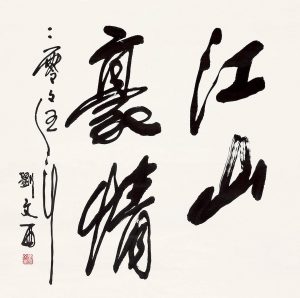 江山
豪情
二零
劉文西